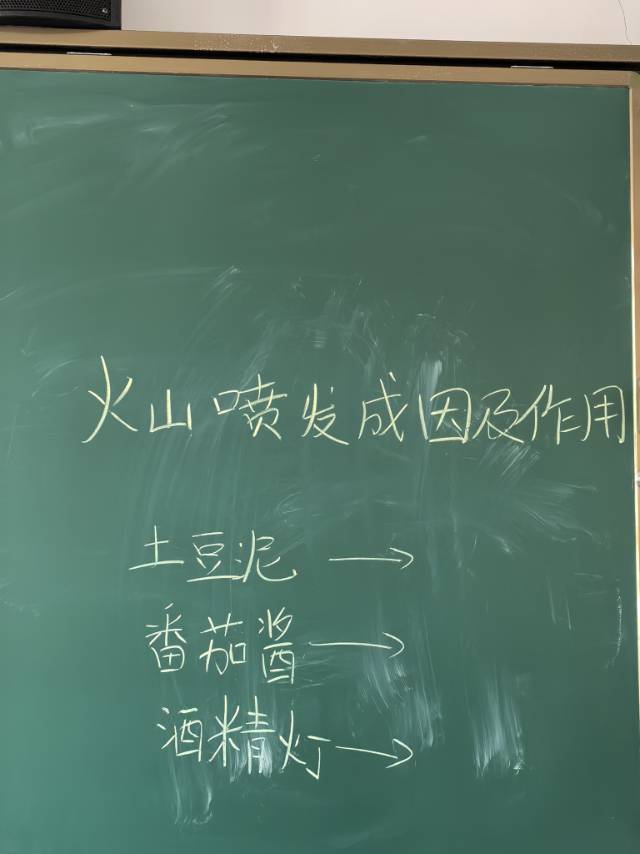 火山喷发成因及作用
土豆泥 →
番茄酱 →
酒精灯 →